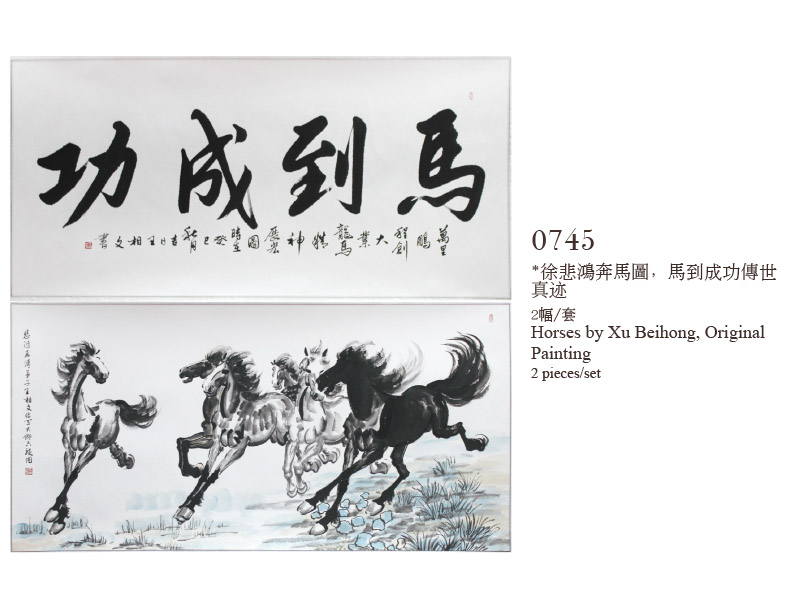 馬到成功
萬里鵬程創大業龍馬精神展宏圖時在癸巳秋月吉日王相文書
悲鴻再傳弟子王相文
六駿圖
0745
*徐悲鴻奔馬圖，馬到成功傳世
真迹
2幅/套
Horses by Xu Beihong, Original
Painting
2 pieces/set